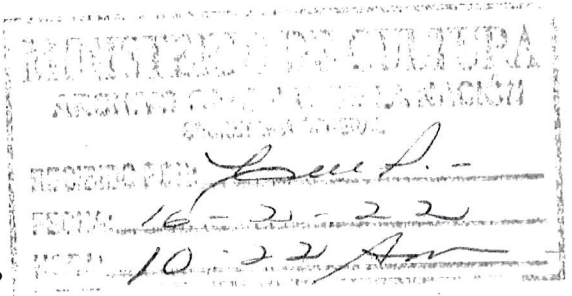 MINISTERIO DE CULTURA
ARCHIVO GENERAL DE LA NACIÓN
RECIBIDO POR:
FECHA: 16-2-22
HORA: 10:22 Am